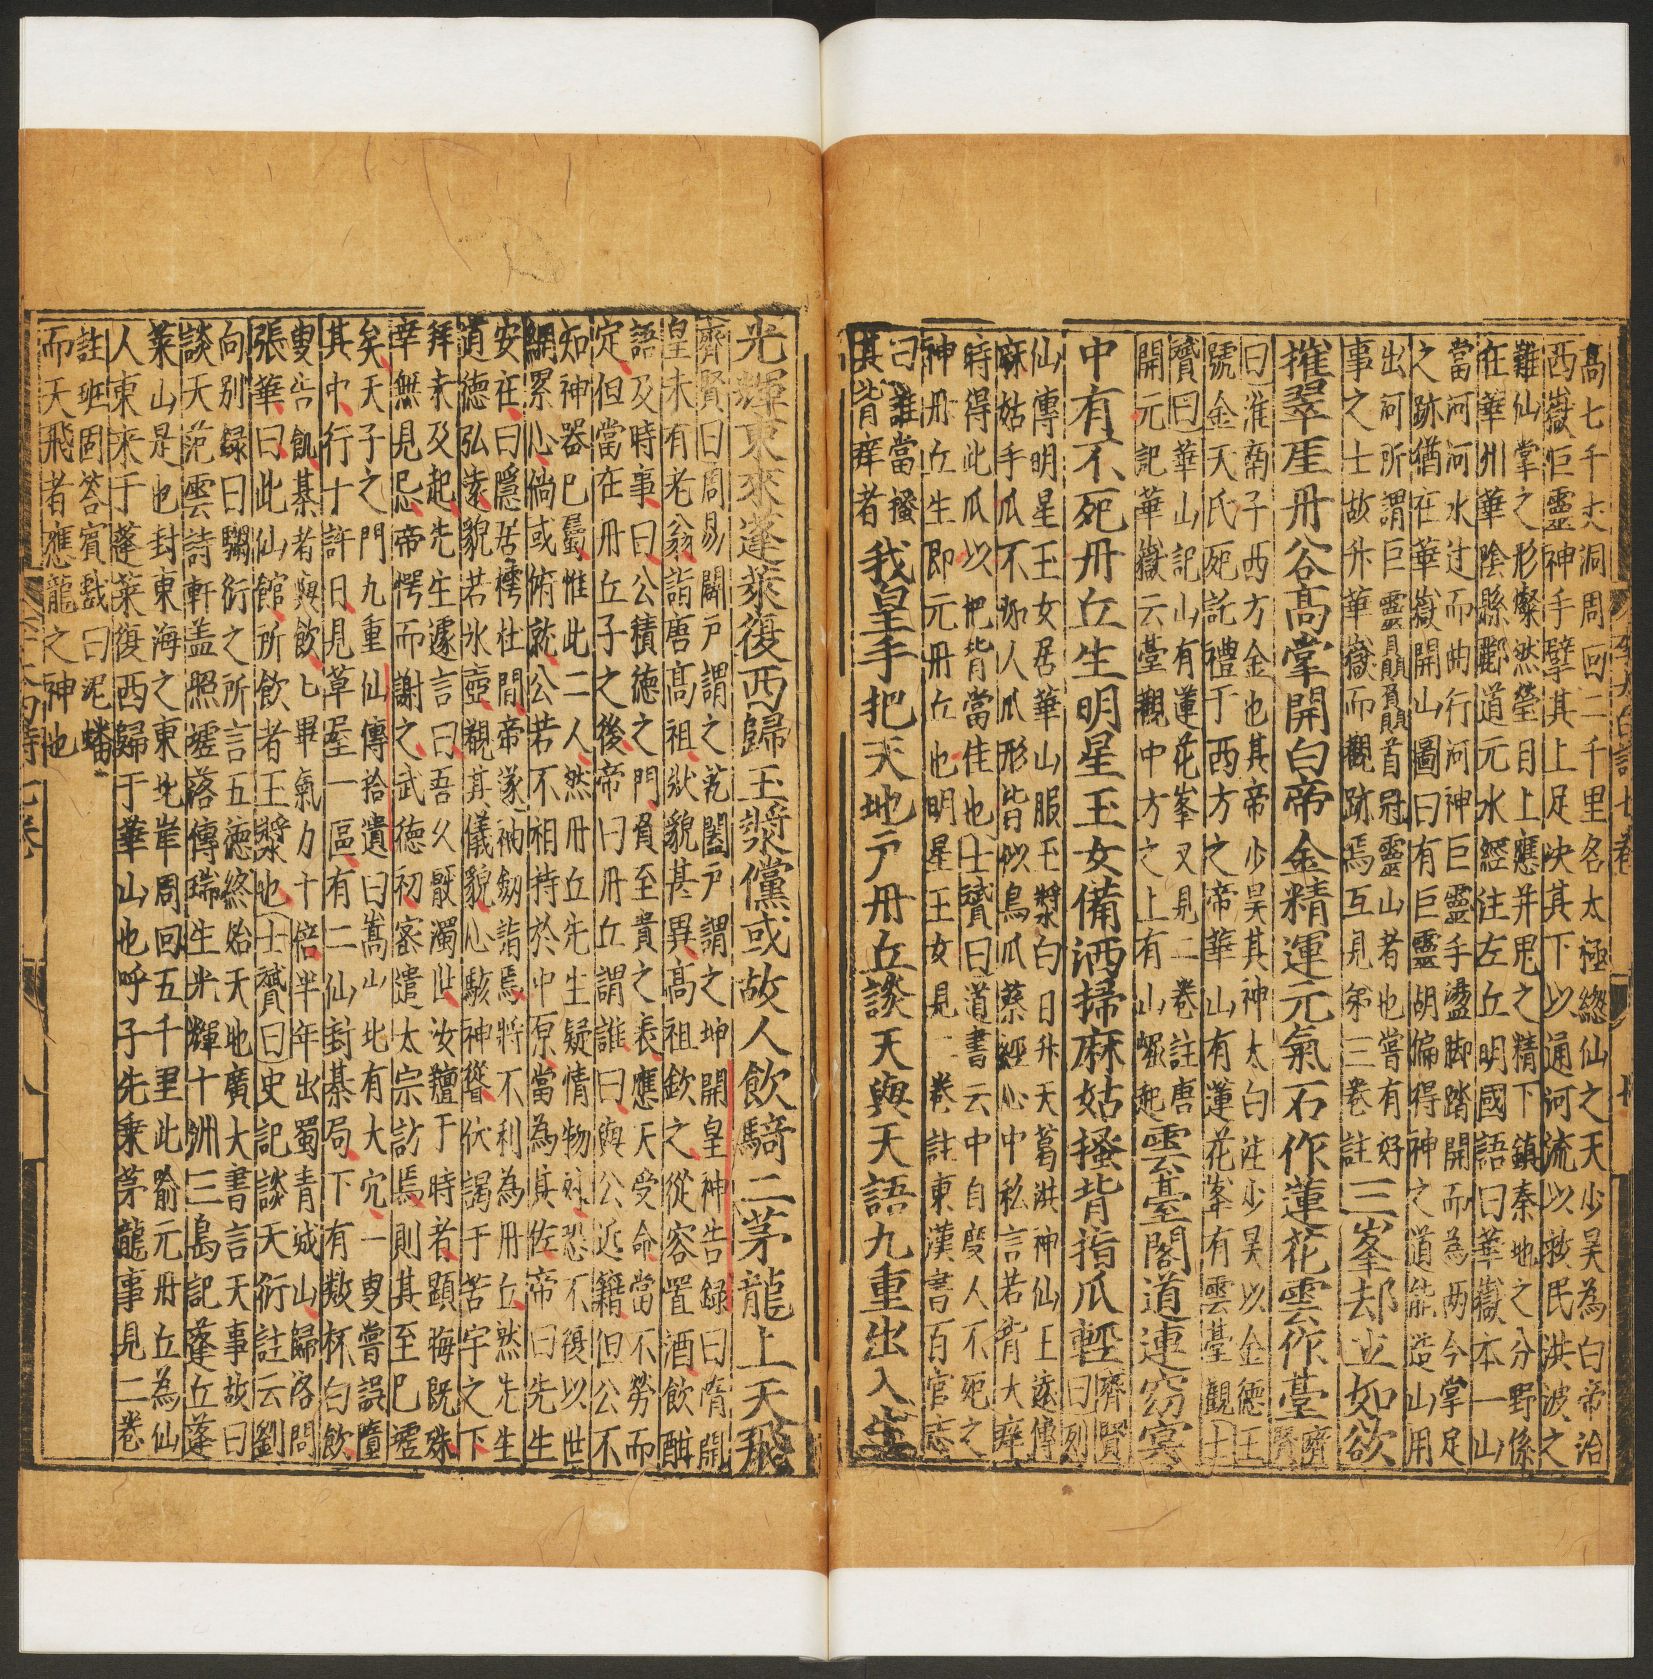 高七千丈洞周回二千里名太極緫仙之天少昊為白帝治
西嶽巨靈神手擘其上足決其下以通河流以救民洪波之
難仙掌之形燦然瑩目上應井鬼之精下鎮秦地之分野係
在華州華陰縣酈道元水經注左丘明國語曰華嶽本一山
當河河水过而曲行河神巨靈手盪脚踏開而為两今掌足
之跡猶在華嶽開山圖曰有巨靈胡偏得神之道能造山用
出河所謂巨靈贔屓首冠靈山者也嘗有好
事之士故升華嶽而觀跡焉互見苐三卷註
三峯却立如欲
摧翠厓丹谷高掌開白帝金精運元氣石作蓮花雲作臺
齊賢
曰淮南子西方金也其帝少昊其神太白注少昊以金德王
號金天氏死託禮于西方之帝華山有蓮花峯有雲臺觀士
贇曰華山記山有蓮花峯又見二卷註唐
開元記華嶽云臺觀中方之上有山崛起
雲臺閣道連窈冥
中有不死丹丘生明星玉女備洒掃麻姑搔背指爪輕
齊賢
曰列
仙傳明星玉女居華山服玉漿白日升天葛洪神仙王遠傳
麻姑手爪不如人爪形皆似鳥爪蔡經心中私言若背大癢
時得此爪以杷背當佳也士贇曰道書云中自段人不死之
神丹丘生即元丹丘也明星玉女見二卷註東漢書百官志
曰誰當搔
其背癢者
我皇手把天地戶丹丘談天與天語九重出入生
光輝東來蓬萊復西歸玉漿儻或故人飲騎二茅龍上天飛
齊賢曰周易闢戸謂之乾闔戸謂之坤開皇神告録曰隋開
皇末有老翁詣唐高祖狀貌甚異高祖欽之從容置酒飲酣
語及時事曰公積德之門負至貴之表應天受命當不勞而
定但當在丹丘子之後帝曰丹丘謂誰曰與公近籍但公不
知神器已屬惟此二人然丹丘先生疑情物外恐不復以世
網累心倘或俯就公若不相持於中原當為其佐帝曰先生
安在曰隱居樗杜間帝遂袖劒詣焉將不利為丹丘然先生
道德弘遠貌若氷壺觀其儀貌心駭神聳伏謁于苦宇之下
拜未及起先生遽言曰吾久厭濁世汝羶于時者顯晦既殊
幸無見忌帝愕而謝之武德初宻遣太宗訪焉則其至已墟
矣天子之門九重仙傳拾遺曰嵩山北有大穴一叟嘗誤墮
其中行十許日見草屋一區有二仙對棊局下有數杯白飲
叟告飢棊者與飲飲畢氣力十倍半年出蜀青城山歸洛問
張華曰此仙館所飲者玉漿也士贇曰史記談天衍註云劉
向別録曰騶衍之所言五德終始天地廣大書言天事故曰
談天范雲詩軒盖照墟落傳瑞生光輝十洲三島記蓬丘蓬
萊山是也封東海之東北岸周回五千里此喻元丹丘為仙
人東来于蓬萊復西歸于華山也呼子先乗茅龍事見二卷
註班固荅賓戲曰泥蟠
而天飛者應龍之神也